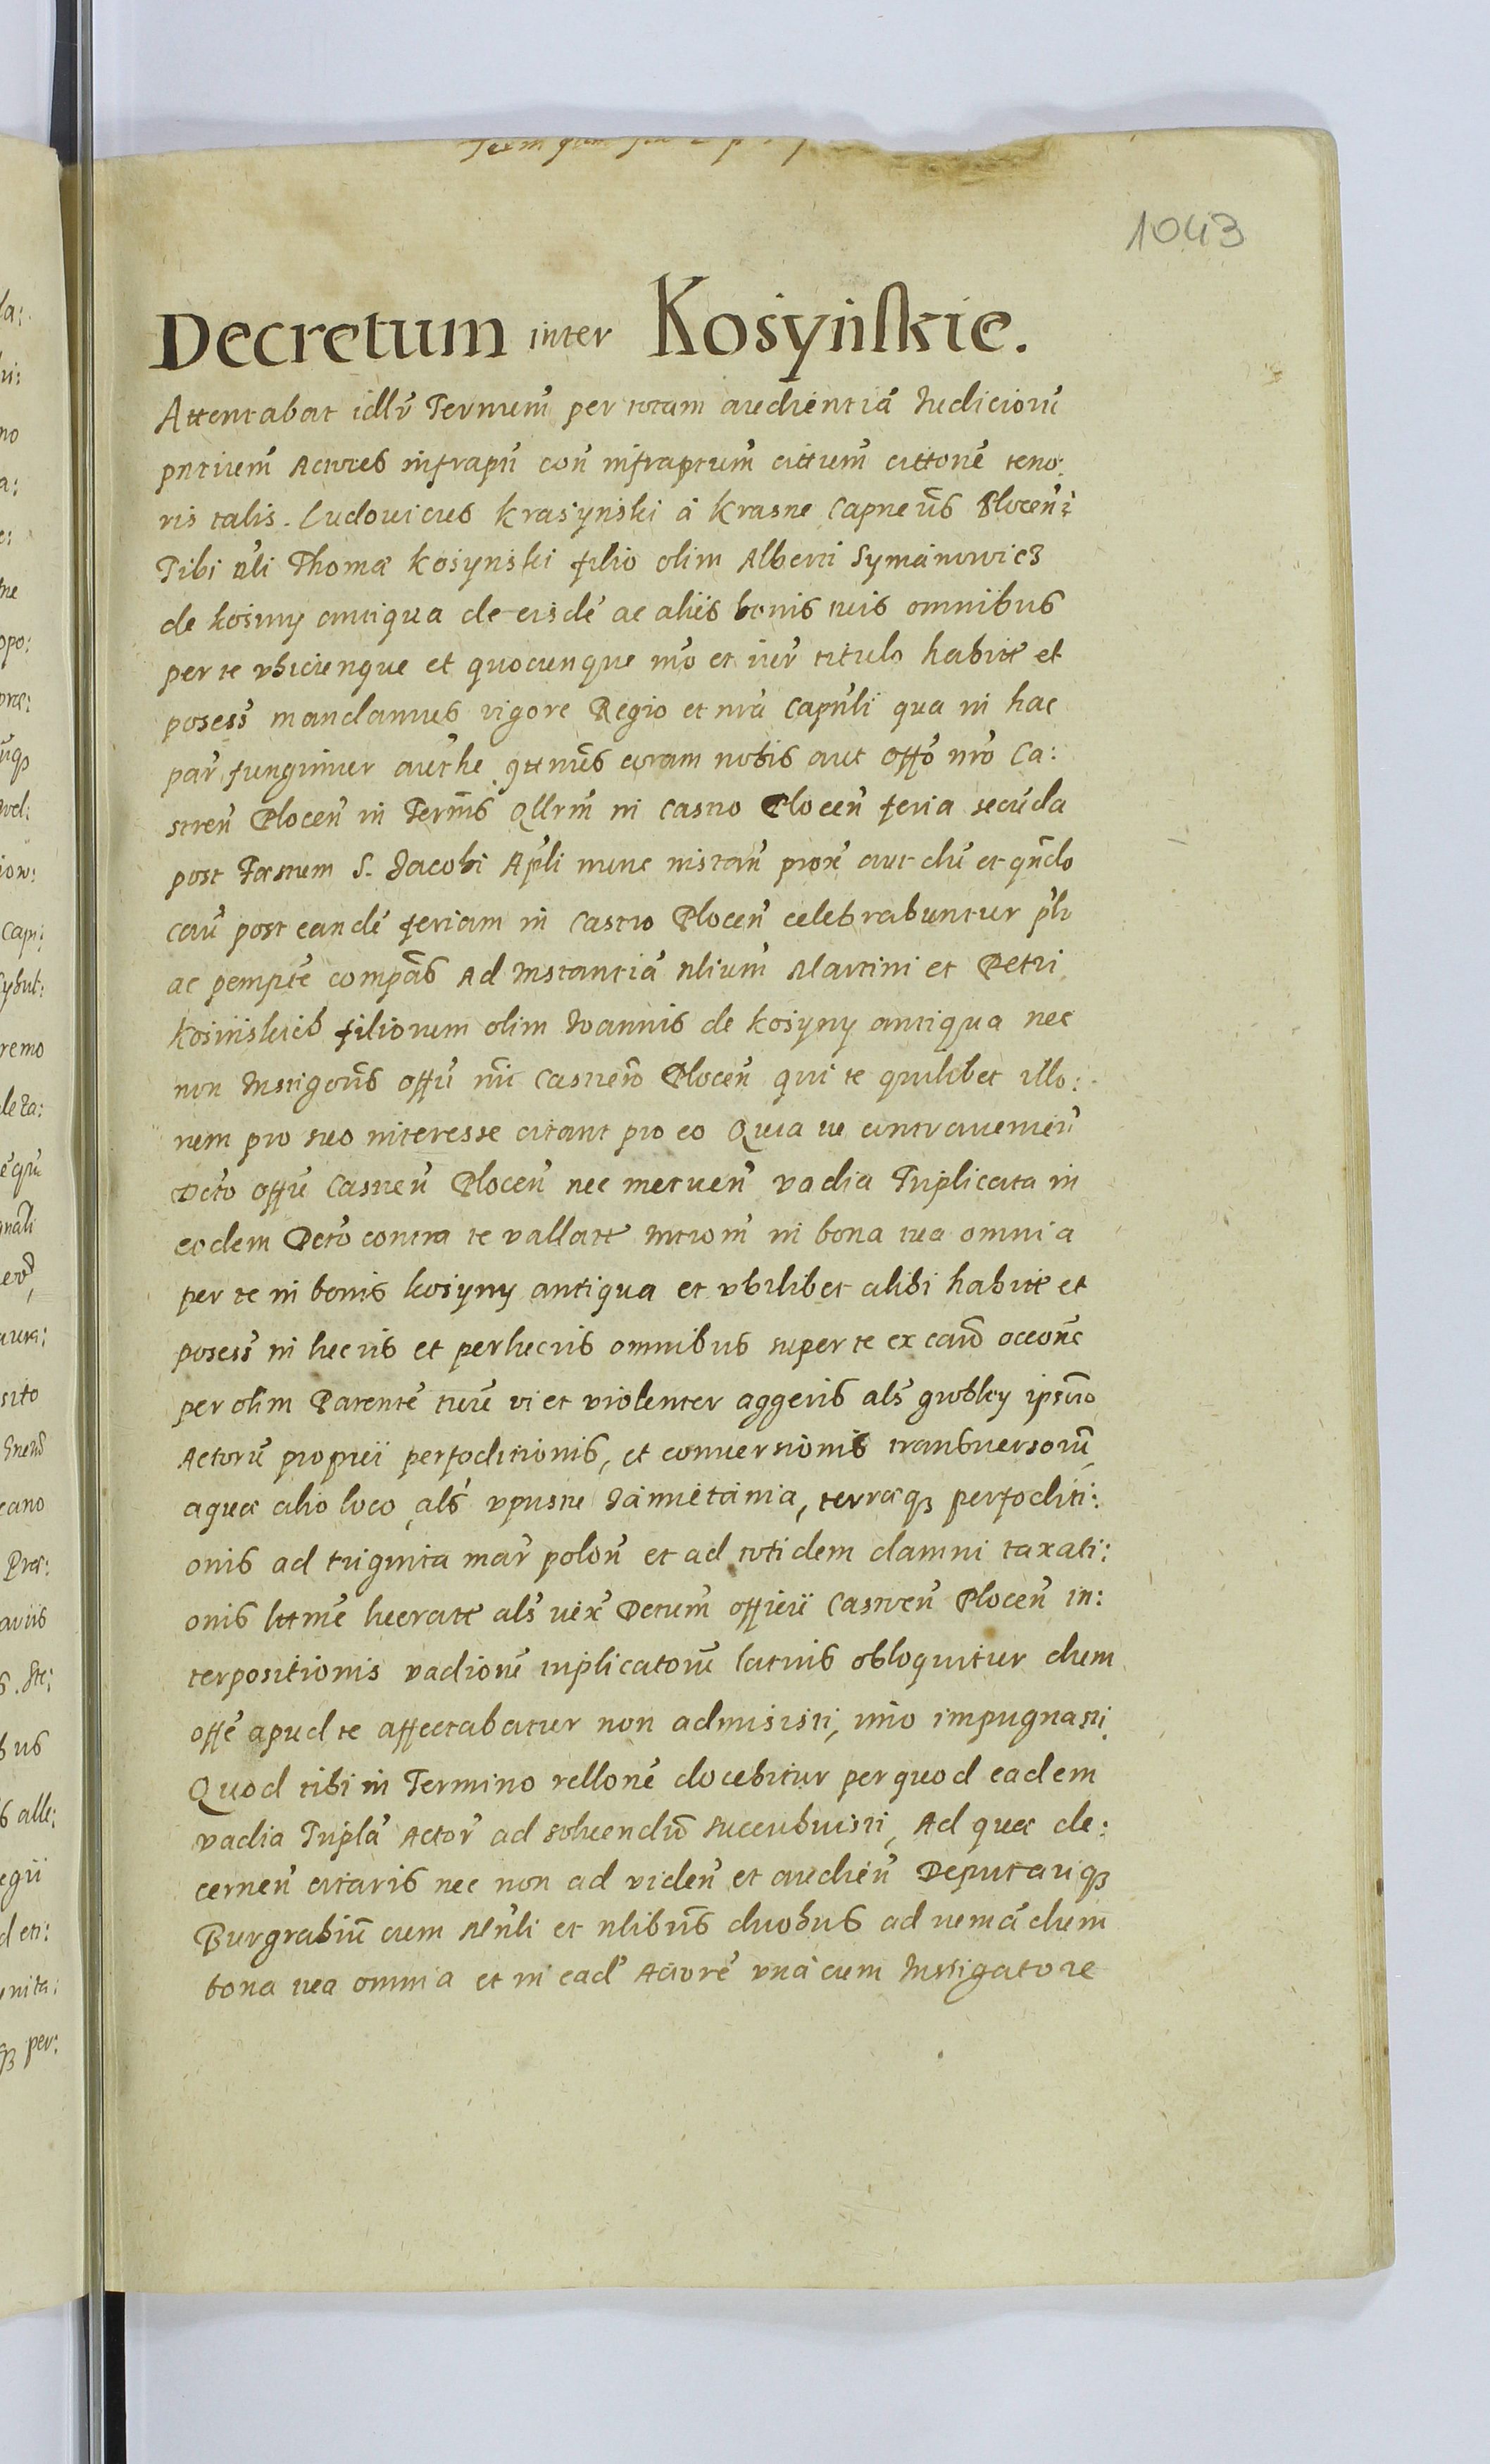 1043
Decretum inter Kosyńskie.
Attentabat idlr̃ Termum̃ per totam audientiã Iudiciorũ
pntium̃ Actores infrapñ con̄ infraptum̃ cittum̃ cittonẽ teno:
ris talis. Ludouicus Krasynski à Krasne Capneũs Plocen̄:
Tibi n̄li Thomæ Kosynski filio olim Alberti Symanowicz
de kosiny antiqua de eisdẽ ac aliis bonis tuis omnibus
per te vbicunque et quocunque mõ et iur̃ titulo habitẽ et
posess̃ mandamus vigore Regio et nrã Capñli qua in hac
par̃ fungimur authe qttnũs coram nobis aut offõ nrõ Ca:
stren̄ Plocen̄ in Termĩs Qllrm̃ in Castro Plocen̄ feria secũda
post Festum S. Iacobi Apli nunc instan̄ prox̃ aut dũ et qn̄do
cau̇ post eandẽ feriam in Castro Plocen̄ celebrabuntur plr̃
ac pempte compãs Ad Instantiã nlium̃ Martini et Petri
Kosinskich filiorum olim Ioannis de kosyny antiqua nec
non Instigoris̃ offŭ nri Castren̄ Plocen̄ qui te quilibet illo:
rum pro suo interesse citant pro eo Quia tu contraueniẽn
Dctõ offŭ Castren̄ Plocen̄ nec metuen̄ vadia Triplicata in
eodem Dctõ contra te vallatẽ Intrõm in bona tua omnia
per te in bonis kosyny antiqua et vbilibet alibi habitẽ et
posess̃ in lucris et perlucris omnibus super te ex caũ occonẽ
per olim Parentẽ tuũ vi et violenter aggeris als̃ grobley ipsŭo
Actorũ proprii perfoditionis, et conuersionis transuersorũ,
aquæ alio loco, als̃ vpustu, terræq perfoditi:
onis ad triginta mar̃ polon̄ et ad totidem damni taxati:
onis lttmẽ lucratẽ als̃ iux̃ Dctum̃ officii Castren̄ Plocen̄ in:
terpositionis vadiorũ triplicatorũ latius obloquitur dum
offẽ apud te affectabatur non admisisti, imo impugnasti
Quod tibi in Termino rellonẽ docebitur per quod eadem
vadia Triplã Actor̃ ad soluendũ succubuisti, Ad quæ de:
cernen̄ citaris nec non ad viden̄ et audien̄ Deputariq
Burgrabiũ cum Mñli et nlibũs duobus ad uemãdum
bona tua omnia et in ead̃ Actorẽ vnà cum Instigatore